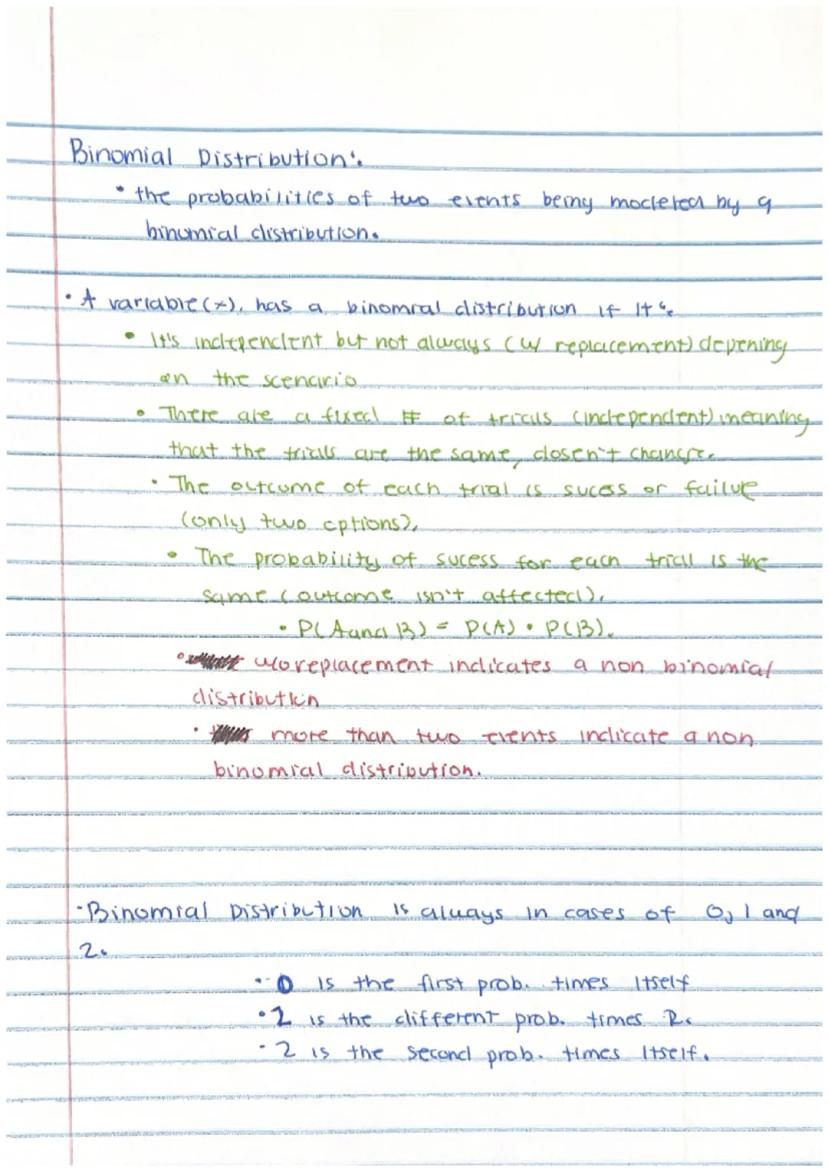 Binomial Distribution:
• the probabilities of two events being modeled by a
binomial distribution.
• A variable (x), has a binomial distribution if it's
• It's independent but not always (w/ replacement) depening
on the scenario
• There are a fixed # of trials (independent) meaning
that the trials are the same, dosen't change.
• The outcome of each trial is sucess or failure
(only two options),
• The probability of sucess for each trial is the
same (outcome isn't affected),
• P(A and B) = P(A) • P(B).
• w/o replacement indicates a non binomial
distribution
• more than two events indicate a non
binomial distribution.
• Binomial Distribution is always in cases of 0, 1 and
2.
• 0 is the first prob. times itself
• 2 is the different prob. times 2.
• 2 is the second prob. times itself.